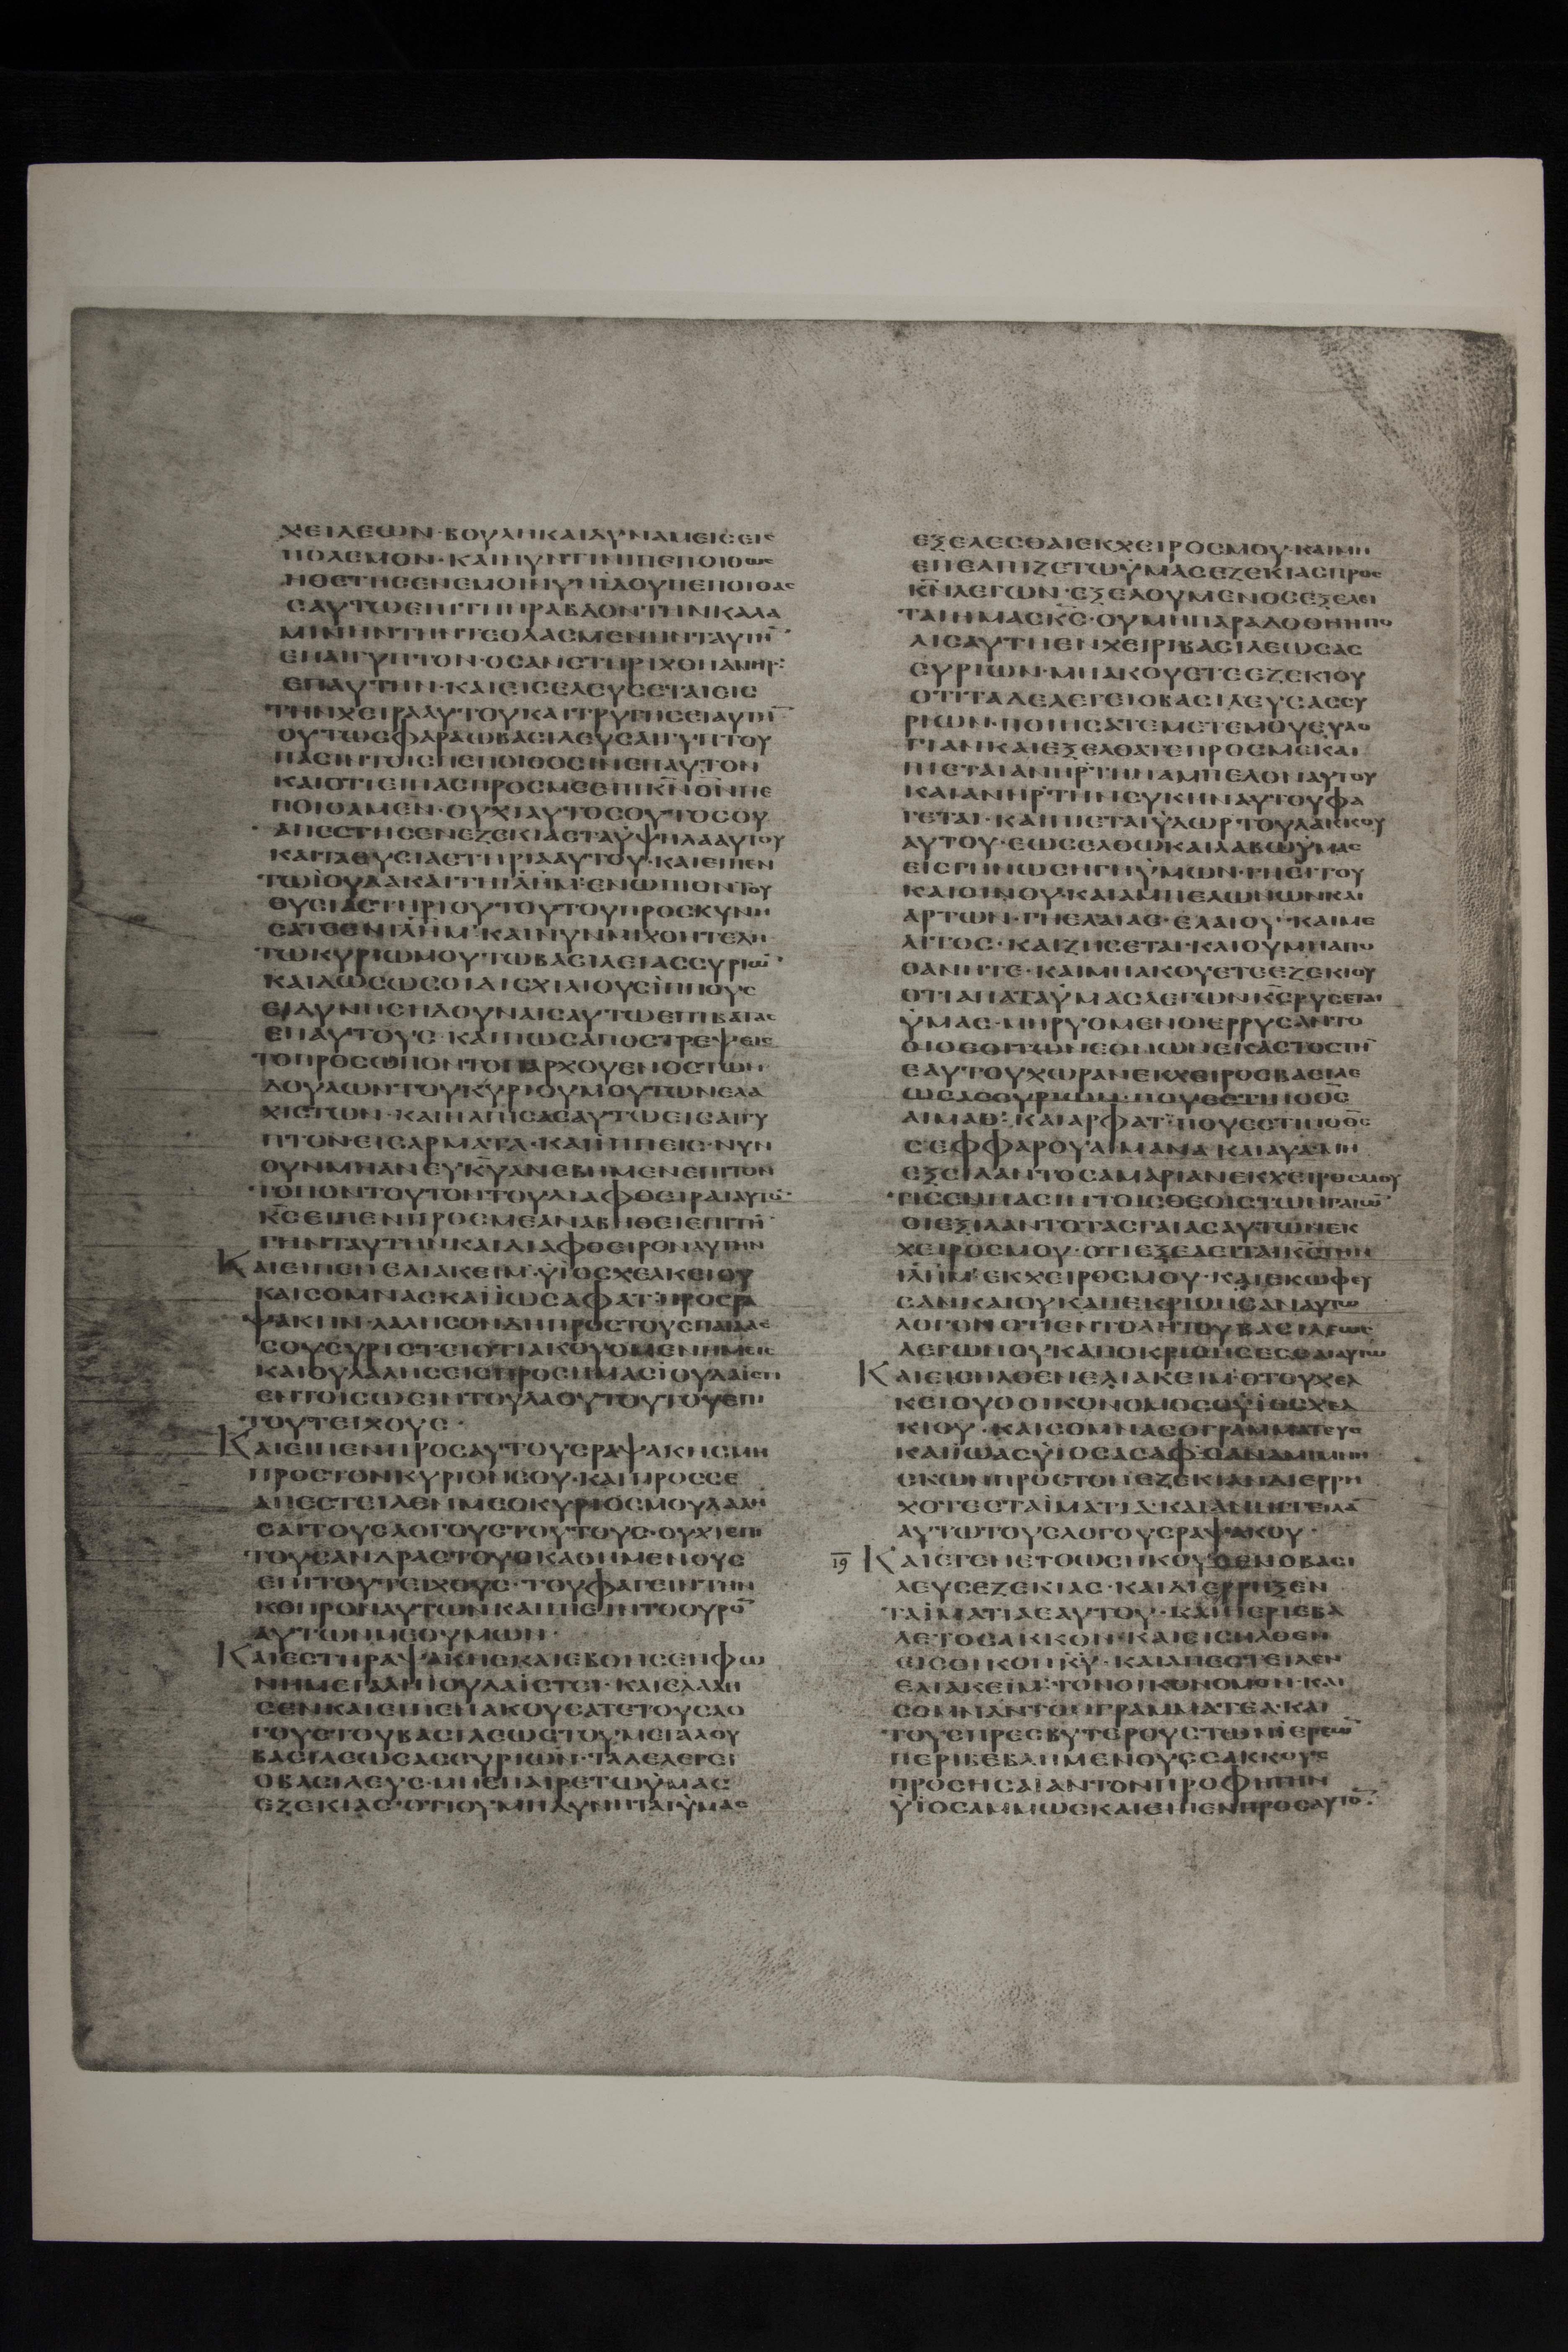 ΧΕΙΛΕΩΝ·ΒΟΥΛΗΚΑΙΔΥΝΑΜΕΙΣΕΙΣ
ΠΟΛΕΜΟΝ·ΚΑΙΝΥΝΤΙΝΙΠΕΠΟΙΘΩΣ
ΣΑΥΤΩΕΠΙΤΗΝΡΑΒΔΟΝΤΗΝΚΑΛΑ
ΜΙΝΗΝΤΗΝΤΕΘΛΑΣΜΕΝΗΝΤΑΥΤΗ̅
ΕΠΑΙΓΥΠΤΟΝ·ΟΣΑΝΣΤΗΡΙΧΘΗΑΝΗΡ:
ΕΠΑΥΤΗΝ·ΚΑΙΕΙΣΕΛΕΥΣΕΤΑΙΕΙΣ
ΤΗΝΧΕΙΡΑΑΥΤΟΥΚΑΙΤΡΥΠΗΣΕΙΑΥΤΗ̅
ΟΥΤΩΣΦΑΡΑΩΒΑΣΙΛΕΥΣΑΙΓΥΠΤΟΥ
ΠΑΣΙΝΤΟΙΣΠΕΠΟΙΘΟΣΙΝΕΠΑΥΤΟΝ
ΚΑΙΟΤΙΕΙΠΑΣΠΡΟΣΜΕΕΠΙΚ̅Ν̅Θ̅Ν̅ΠΕ
ΠΟΙΘΑΜΕΝ·ΟΥΧΙΑΥΤΟΣΟΥΤΟΣΟΥ
ΑΠΕΣΤΗΣΕΝΕΖΕΚΙΑΣΤΑΥΨΗΛΑΑΥΤΟΥ
ΚΑΙΤΑΘΥΣΙΑΣΤΗΡΙΑΑΥΤΟΥ·ΚΑΙΕΙΠΕΝ
ΤΩΪΟΥΔΑΚΑΙΤΗΙ̅Λ̅Η̅Μ̅·ΕΝΩΠΙΟΝΤΟΥ
ΘΥΣΙΑΣΤΗΡΙΟΥΤΟΥΤΟΥΠΡΟΣΚΥΝΗ
ΣΑΤΕΕΝΙ̅Λ̅Η̅Μ̅·ΚΑΙΝΥΝΜΙΧΘΗΤΕΔΗ
ΤΩΚΥΡΙΩΜΟΥ·ΤΩΒΑΣΙΛΕΙΑΣΣΥΡΙΩ̅·
ΚΑΙΔΩΣΩΣΟΙΔΙΣΧΙΛΙΟΥΣΪΠΠΟΥΣ
ΕΙΔΥΝΗΣΗΔΟΥΝΑΙΣΑΥΤΩΕΠΙΒΑΤΑΣ
ΕΠΑΥΤΟΥΣ·ΚΑΙΠΩΣΑΠΟΣΤΡΕΨΕΙΣ
ΤΟΠΡΟΣΩΠΟΝΤΟΠΑΡΧΟΥΕΝΟΣΤΩΝ
ΔΟΥΛΩΝΤΟΥΚΥΡΙΟΥΜΟΥΤΩΝΕΛΑ
ΧΙΣΤΩΝ·ΚΑΙΗΛΠΙΣΑΣΑΥΤΩΕΙΣΑΙΓΥ
ΠΤΟΝ·ΕΙΣΑΡΜΑΤΑ·ΚΑΙΪΠΠΕΙΣ·ΝΥΝ
ΟΥΝΜΗΑΝΕΥΚ̅Υ̅ΑΝΕΒΗΜΕΝΕΠΙΤΟΝ
ΤΟΠΟΝΤΟΥΤΟΝΤΟΥΔΙΑΦΘΕΙΡΑΙΑΥΤΟ̅·
Κ̅Σ̅ΕΙΠΕΝΠΡΟΣΜΕΑΝΑΒΗΘΙΕΠΙΤΗ̅
ΓΗΝΤΑΥΤΗΝΚΑΙΔΙΑΦΘΕΙΡΟΝΑΥΤΗΝ
ΚΑΙΕΙΠΕΝΕΛΙΑΚΕΙΜ·ΫΪΟΣΧΕΛΚΕΙΟΥ
ΚΑΙΣΟΜΝΑΣΚΑΙΪΩΣΑΦΑΤ·ΠΡΟΣΡΑ
ΨΑΚΗΝ·ΛΑΛΗΣΟΝΔΗΠΡΟΣΤΟΥΣΠΑΙΔΑΣ
ΣΟΥΣΥΡΙΣΤΕΙΟΤΙΑΚΟΥΟΜΕΝΗΜΕΙΣ
ΚΑΙΟΥΛΑΛΗΣΕΙΣΠΡΟΣΗΜΑΣΪΟΥΔΑΪΣΤΙ
ΕΝΤΟΙΣΩΣΙΝΤΟΥΛΑΟΥΤΟΥΤΟΥΕΠΙ
ΤΟΥΤΕΙΧΟΥΣ·
ΚΑΙΕΙΠΕΝΠΡΟΣΑΥΤΟΥΣΡΑΨΑΚΗΣΜΗ
ΠΡΟΣΤΟΝΚΥΡΙΟΝΣΟΥ·ΚΑΙΠΡΟΣΣΕ
ΑΠΕΣΤΕΙΛΕΝΜΕΟΚΥΡΙΟΣΜΟΥΛΑΛΗ
ΣΑΙΤΟΥΣΛΟΓΟΥΣΤΟΥΤΟΥΣ·ΟΥΧΙΕΠΙ
ΤΟΥΣΑΝΔΡΑΣΤΟΥΣΚΑΘΗΜΕΝΟΥΣ
ΕΠΙΤΟΥΤΕΙΧΟΥΣ·ΤΟΥΦΑΓΕΙΝΤΗΝ
ΚΟΠΡΟΝΑΥΤΩΝΚΑΙΠΙΕΙΝΤΟΟΥΡΟ̅
ΑΥΤΩΝΜΕΘΥΜΩΝ·
ΚΑΙΕΣΤΗΡΑΨΑΚΗΣΚΑΙΕΒΟΗΣΕΝΦΩ
ΝΗΜΕΓΑΛΗΪΟΥΔΑΪΣΤΕΙ·ΚΑΙΕΛΑΛΗ
ΣΕΝΚΑΙΕΙΠΕΝΑΚΟΥΣΑΤΕΤΟΥΣΛΟ
ΓΟΥΣΤΟΥΒΑΣΙΛΕΩΣΤΟΥΜΕΓΑΛΟΥ
ΒΑΣΙΛΕΩΣΑΣΣΥΡΙΩΝ·ΤΑΔΕΛΕΓΕΙ
ΟΒΑΣΙΛΕΥΣ·ΜΗΕΠΑΙΡΕΤΩΫΜΑΣ
ΕΖΕΚΙΑΣ·ΟΤΙΟΥΜΗΔΥΝΗΤΑΙΫΜΑΣ
ΕΞΕΛΕΣΘΑΙΕΚΧΕΙΡΟΣΜΟΥ·ΚΑΙΜΗ
ΕΠΕΛΠΙΖΕΤΩΫΜΑΣΕΖΕΚΙΑΣΠΡΟΣ
Κ̅Ν̅ΛΕΓΩΝ·ΕΞΕΛΟΥΜΕΝΟΣΕΞΕΛΕΙ
ΤΑΙΗΜΑΣΚ̅Σ̅·ΟΥΜΗΠΑΡΑΔΟΘΗΗΠΟ
ΛΙΣΑΥΤΗΕΝΧΕΙΡΙΒΑΣΙΛΕΩΣΑΣ
ΣΥΡΙΩΝ·ΜΗΑΚΟΥΕΤΕΕΖΕΚΙΟΥ
ΟΤΙΤΑΔΕΛΕΓΕΙΟΒΑΣΙΛΕΥΣΑΣΣΥ
ΡΙΩΝ·ΠΟΙΗΣΑΤΕΜΕΤΕΜΟΥΕΥΛΟ
ΓΙΑΝΚΑΙΕΞΕΛΘΑΤΕΠΡΟΣΜΕΚΑΙ
ΠΙΕΤΑΙΑΝΗΡΤΗΝΑΜΠΕΛΟΝΑΥΤΟΥ
ΚΑΙΑΝΗΡΤΗΝΣΥΚΗΝΑΥΤΟΥΦΑ
ΓΕΤΑΙ·ΚΑΙΠΙΕΤΑΙΫΔΩΡΤΟΥΛΑΚΚΟΥ
ΑΥΤΟΥ·ΕΩΣΕΛΘΩΚΑΙΛΑΒΩΫΜΑΣ
ΕΙΣΓΗΝΩΣΗΓΗΫΜΩΝ·ΓΗΣΙΤΟΥ
ΚΑΙΟΙΝΟΥ·ΚΑΙΑΜΠΕΛΩΝΩΝΚΑΙ
ΑΡΤΩΝ·ΓΗΕΛΑΙΑΣ·ΕΛΑΙΟΥ·ΚΑΙΜΕ
ΛΙΤΟΣ·ΚΑΙΖΗΣΕΤΑΙ·ΚΑΙΟΥΜΗΑΠΟ
ΘΑΝΗΤΕ·ΚΑΙΜΗΑΚΟΥΕΤΕΕΖΕΚΙΟΥ
ΟΤΙΑΠΑΤΑΫΜΑΣΛΕΓΩΝΚ̅Σ̅ΡΥΣΕΤΑΙ
ΫΜΑΣ·ΜΗΡΥΟΜΕΝΟΙΕΡΡΥΣΑΝΤΟ
ΟΙΘΕΟΙΤΩΝΕΘΝΩΝΕΚΑΣΤΟΣΤΗ̅
ΕΑΥΤΟΥΧΩΡΑΝΕΚΧΕΙΡΟΣΒΑΣΙΛΕ
ΩΣΑΣΣΥΡΙΩΝ·ΠΟΥΕΣΤΙΝΟΘ̅Σ̅
ΑΙΜΑΘ·ΚΑΙΑΡΦΑΤ·ΠΟΥΕΣΤΙΝΟΘ̅Σ̅
ΕΞΕΙΛΑΝΤΟΣΑΜΑΡΙΑΝΕΚΧΕΙΡΟΣΜΟΥ
ΤΙΣΕΝΠΑΣΙΝΤΟΙΣΘΕΟΙΣΤΩΝΓΑΙΩ̅
ΟΙΕΞΙΛΑΝΤΟΤΑΣΓΑΙΑΣΑΥΤΩΝΕΚ
ΧΕΙΡΟΣΜΟΥ·ΟΤΙΕΞΕΛΕΙΤΑΙΚ̅Σ̅ΤΗΝ
Ι̅Λ̅Η̅Μ̅·ΕΚΧΕΙΡΟΣΜΟΥ·ΚΑΙΕΚΩΦΕΥ
ΣΑΝΚΑΙΟΥΚΑΠΕΚΡΙΘΗΣΑΝΑΥΤΩ
ΛΟΓΟΝΟΤΙΕΝΤΟΛΗΤΟΥΒΑΣΙΛΕΩΣ
ΛΕΓΩΝΟΥΚΑΠΟΚΡΙΘΗΣΕΣΘΑΙΑΥΤΩ
ΚΑΙΕΙΣΗΛΘΕΝΕΛΙΑΚΕΙΜ·ΟΤΟΥΧΕΛ
ΚΕΙΟΥΟΟΙΚΟΝΟΜΟΣΟΫΪΟΣΧΕΛ
ΚΙΟΥ·ΚΑΙΣΟΜΝΑΣΟΓΡΑΜΜΑΤΕΥΣ
ΚΑΙΪΩΑΣΫΙΟΣΑΣΑΦ·ΟΑΝΑΜΙΜΝΗ
ΣΚΩΝΠΡΟΣΤΟΝΕΖΕΚΙΑΝΔΙΕΡΡΗ
ΧΟΤΕΣΤΑΪΜΑΤΙΑ·ΚΑΙΑΝΗΓΓΕΙΛΑ̅
ΑΥΤΩΤΟΥΣΛΟΓΟΥΣΡΑΨΑΚΟΥ·
19 ΚΑΙΕΓΕΝΕΤΟΩΣΗΚΟΥΣΕΝΟΒΑΣΙ
ΛΕΥΣΕΖΕΚΙΑΣ·ΚΑΙΔΙΕΡΡΗΞΕΝ
ΤΑΪΜΑΤΙΑΕΑΥΤΟΥ·ΚΑΙΠΕΡΙΕΒΑ
ΛΕΤΟΣΑΚΚΟΝ·ΚΑΙΕΙΣΗΛΘΕΝ
ΕΙΣΟΙΚΟΝΚ̅Υ̅·ΚΑΙΑΠΕΣΤΕΙΛΕΝ
ΕΛΙΑΚΕΙΜ·ΤΟΝΟΙΚΟΝΟΜΟΝ·ΚΑΙ
ΣΟΜΝΑΝΤΟΝΓΡΑΜΜΑΤΕΑ·ΚΑΙ
ΤΟΥΣΠΡΕΣΒΥΤΕΡΟΥΣΤΩΝΪΕΡΕΩ̅
ΠΕΡΙΒΕΒΛΗΜΕΝΟΥΣΣΑΚΚΟΥΣ
ΠΡΟΣΗΣΑΪΑΝΤΟΝΠΡΟΦΗΤΗΝ
ΫΪΟΣΑΜΜΩΣΚΑΙΕΙΠΕΝΠΡΟΣΑΥΤΟ̅: